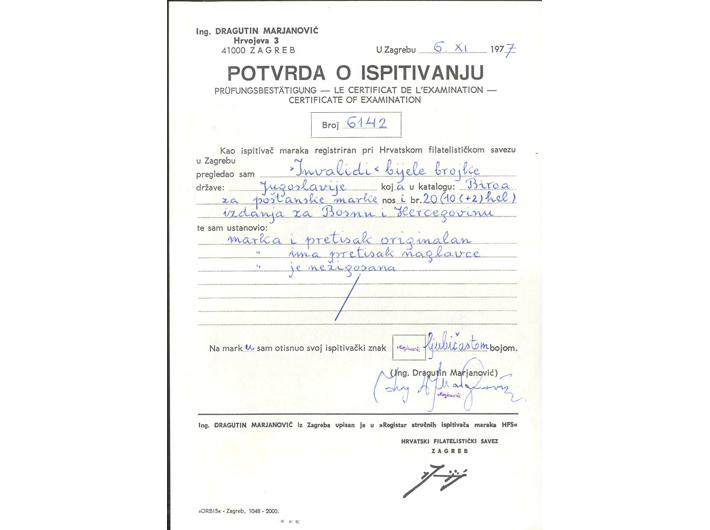 Ing. DRAGUTIN MARJANOVIĆ
Hrvojeva 3
41000 ZAGREB
U Zagrebu 6. XI 1977
POTVRDA O ISPITIVANJU
PRÜFUNGSBESTÄTIGUNG — LE CERTIFICAT DE L'EXAMINATION —
CERTIFICATE OF EXAMINATION
Broj 6142
Kao ispitivač maraka registriran pri Hrvatskom filatelističkom savezu
u Zagrebu
pregledao sam »Invalidi« bijele brojke
države: Jugoslavije koja u katalogu: Biroa
za poštanske marke nosi br. 20 (10 (+2) hel)
izdanja za Bosnu i Hercegovinu
te sam ustanovio:
marka i pretisak originalan
" ima pretisak naglavce
" je nežigosana
Na marku sam otisnuo svoj ispitivački znak Marjanović ljubičastom bojom.
(Ing. Dragutin Marjanović)
Marjanović
Ing. DRAGUTIN MARJANOVIĆ iz Zagreba upisan je u »Registar stručnih ispitivača maraka HFS«
HRVATSKI FILATELISTIČKI SAVEZ
ZAGREB
»ORBIS« - Zagreb, 1048 - 2000.